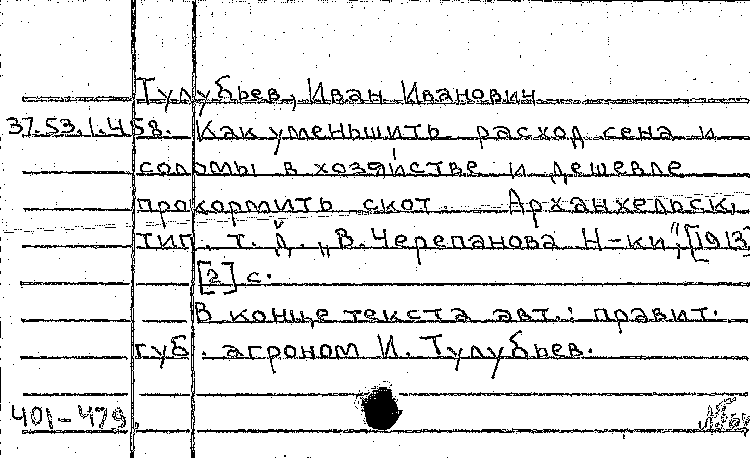 Тулубьев, Иван Иванович
37.53.1.458. Как уменьшить расход сена и
соломы в хозяйстве и дешевле
прокормить скот. Архангельск,
тип. т. д. „В. Черепанова Н-ки", [1913]
[2] с.
В конце текста авт.: правит.
губ. агроном И. Тулубьев.
401-479.